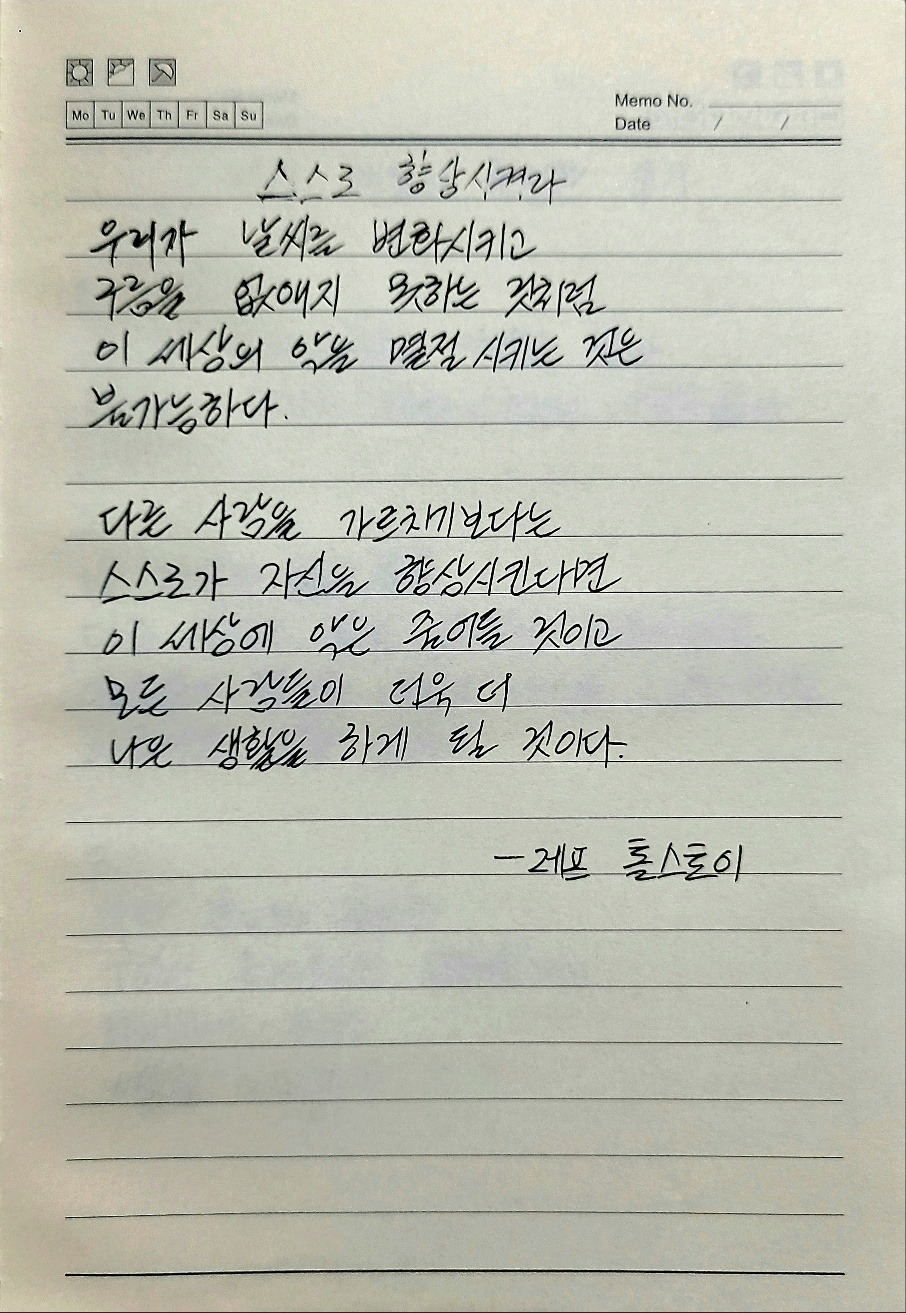 Mo Tu We Th Fr Sa Su
Memo No.
Date / /
스스로 향상시켜라
우리가 날씨를 변화시키고
구름을 없애지 못하는 것처럼
이 세상의 악을 멸절 시키는 것은
불가능하다.
다른 사람을 가르치기보다는
스스로가 자신을 향상시킨다면
이 세상에 악은 줄어들 것이고
모든 사람들이 더욱 더
나은 생활을 하게 될 것이다.
- 레프 톨스토이